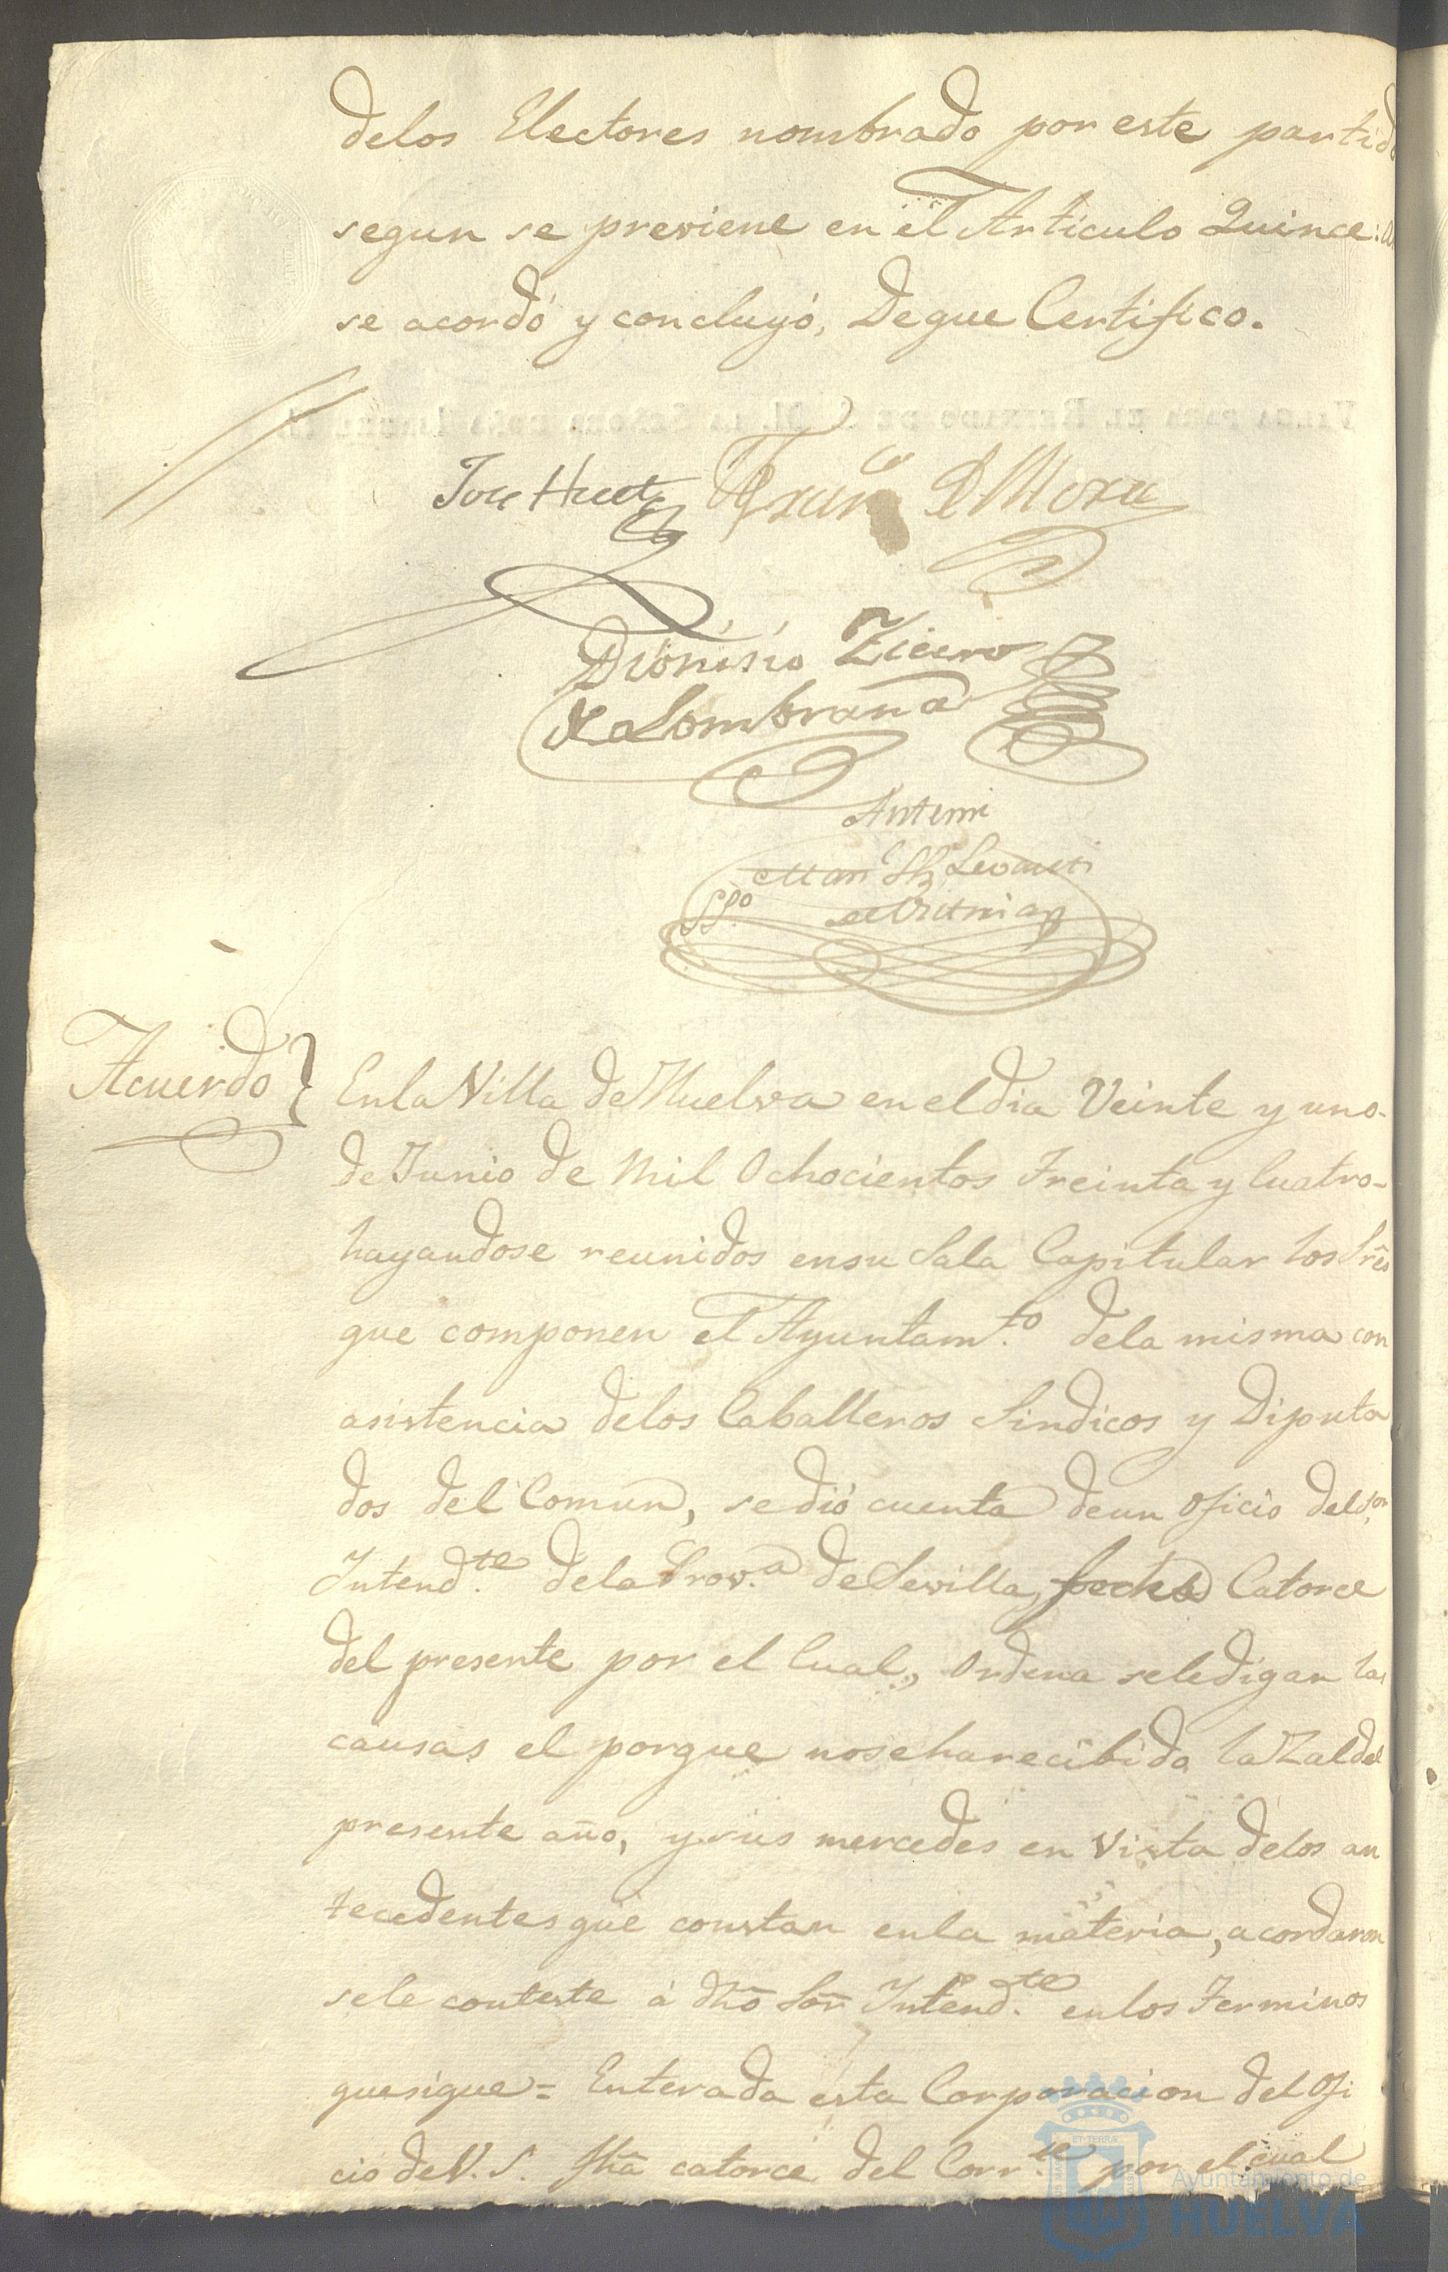 delos Electores nombrado por este partido
segun se previene en el Articulo Quince:
se acordó y concluyó, Deque Certifico.
VALGA PARA EL REINADO DE S. M. LA SEÑORA DOÑA ISABEL II.
Jose Huet Fran.co D Mora
Dionisio Zicero
de Lombrana
Antemi
SS.no de
Acuerdo
Enla Villa de Huelva en el dia Veinte y uno-
de Junio de Mil Ochocientos Treinta y Cuatro-
hayandose reunidos ensu Sala Capitular los Sres
que componen el Ayuntam.to dela misma con
asistencia delos Caballeros Sindicos y Diputa
dos del Comun, se dió cuenta deun oficio del S.or
Intend.te dela Prov.a de Sevilla, fecha Catorce
del presente por el Cual, Ordena seledigan las
causas el porque noseharecibido la Zal del
presente año, y sus mercedes en Vista delos an
tecedentesque constan enla materia, acordaron
sele conteste á dho Sor Intend.te enlos Terminos
quesigue= Enterada esta Corporacion del Ofi
cio de V. S. fha catorce del Corr.te por el cual
ET TERRÆ
Ayuntamiento de
HUELVA